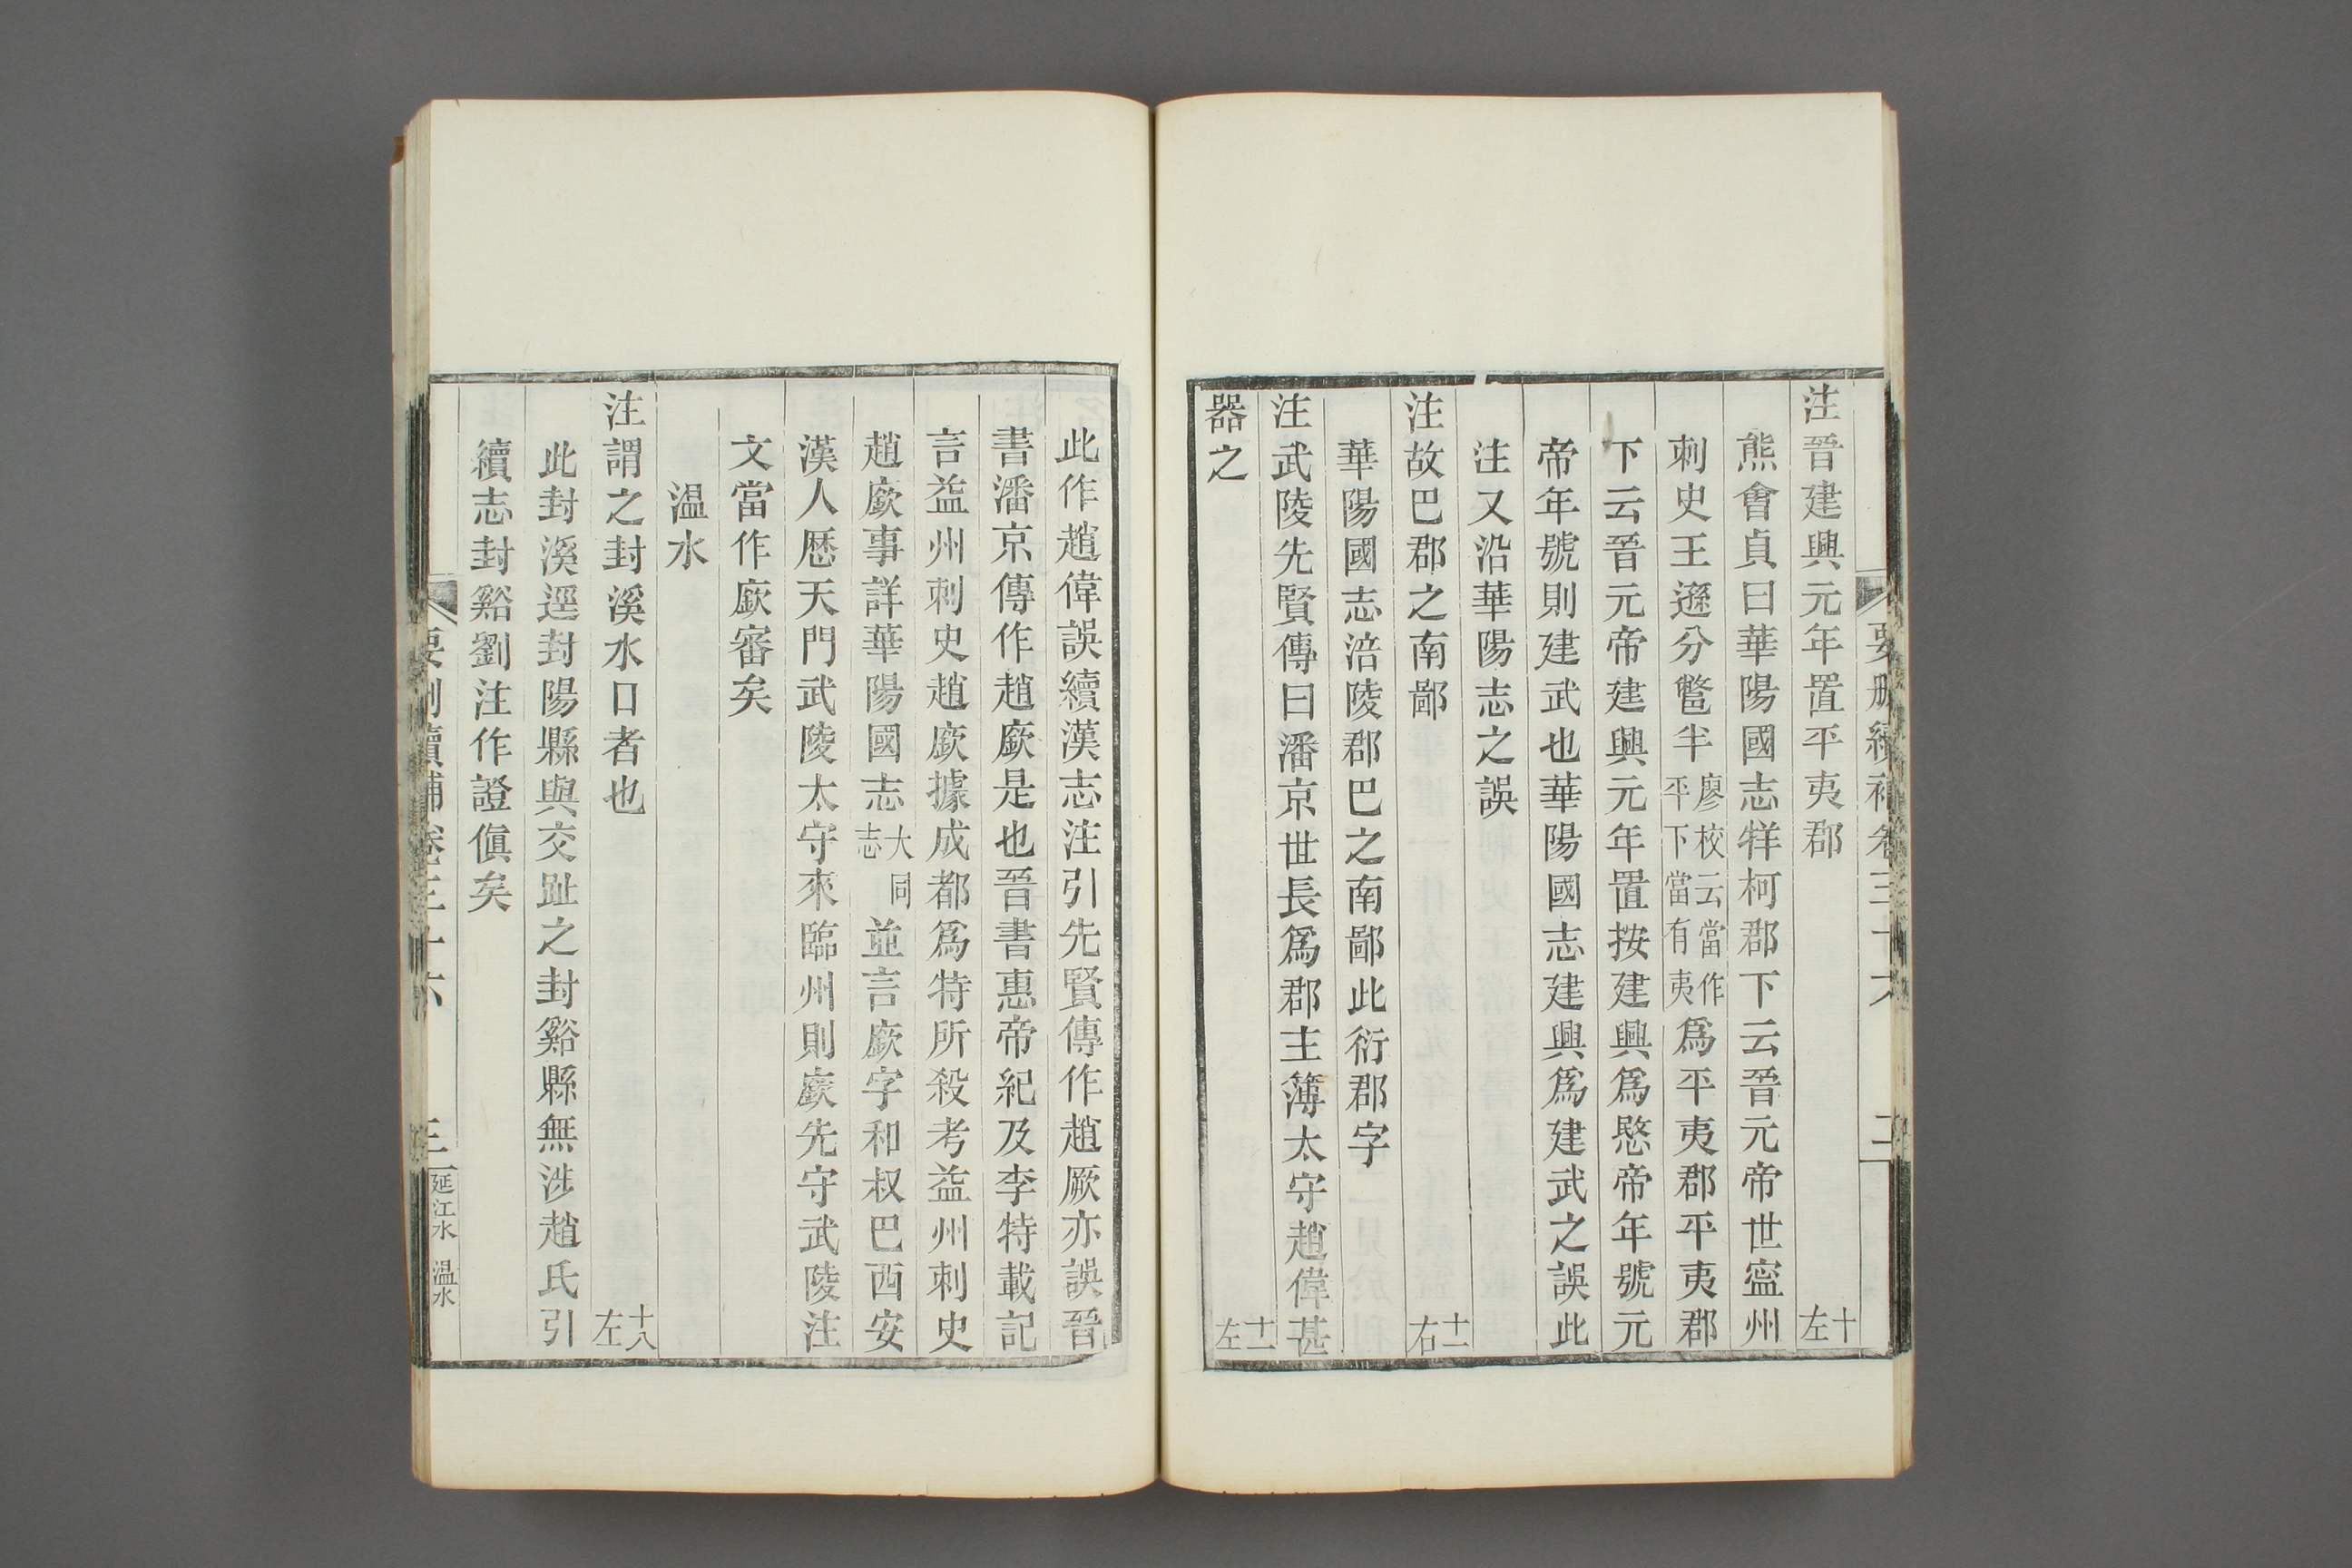 要刪續補卷三十六
二
注晉建興元年置平夷郡 十左
熊會貞曰華陽國志牂柯郡下云晉元帝世寍州
刺史王遜分鄨半廖校云當作平下當有夷爲平夷郡平夷郡
下云晉元帝建興元年置按建興爲愍帝年號元
帝年號則建武也華陽國志建興爲建武之誤此
注又沿華陽志之誤
注故巴郡之南鄙 十一右
華陽國志涪陵郡巴之南鄙此衍郡字
注武陵先賢傳曰潘京世長爲郡主簿太守趙偉甚
器之 十一左
此作趙偉誤續漢志注引先賢傳作趙厥亦誤晉
書潘京傳作趙廞是也晉書惠帝紀及李特載記
言益州刺史趙廞據成都爲特所殺考益州刺史
趙廞事詳華陽國志大同志並言廞字和叔巴西安
漢人歷天門武陵太守來臨州則廞先守武陵注
文當作廞審矣
温水
注謂之封溪水口者也 十八左
此封溪逕封陽縣與交趾之封谿縣無涉趙氏引
續志封谿劉注作證傎矣
要刪續補卷三十六
三
延江水 温水